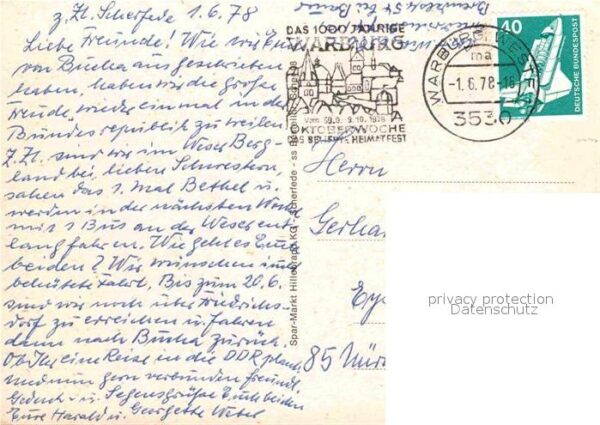 z. Zt. Scherfede 1.6.78
Liebe Freunde! Wie wir Euch
von Bucha aus geschrieben
haben, haben wir die große
Freude, wieder einmal in der
Bundesrepublik zu weilen.
Z. Zt. sind wir im Weserberg-
land bei lieben Schwestern,
sahen das 1. Mal Bethel u.
werden in der nächsten Woche
mit 1 Bus an der Weser ent-
lang fahren. Wie geht es Euch
beiden? Wir wünschen
behütete Fahrt. Bis zum 20.6.
sind wir noch über Friedrichs-
dorf zu erreichen u. fahren
dann nach Bucha zurück.
Ob Ihr eine Reise in die DDR plant?
Und nun gern verbunden Freundl.
Gedenk- u. Segensgrüße Euch beiden
Eure Harald u. Georgette Wetzel
DAS 1000 JÄHRIGE
WARBURG
Vom 30.9. - 9.10.1978
OKTOBERWOCHE
DAS BELIEBTE HEIMATFEST
WARBURG, WESTF
ma
-1.6.78-16
3530
40
DEUTSCHE BUNDESPOST
Spar-Markt Hillebrand KG Scherfede - ss
Herrn
Gerhar
85 Nür
privacy protection
Datenschutz